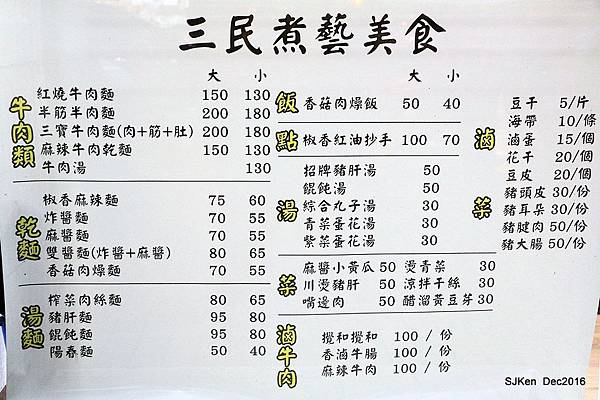 三民煮藝美食
大 小
牛肉類
紅燒牛肉麵 150 130
半筋半肉麵 200 180
三寶牛肉麵(肉+筋+肚) 200 180
麻辣牛肉乾麵 150 130
牛肉湯 130
乾麵
椒香麻辣麵 75 60
炸醬麵 70 55
麻醬麵 70 55
雙醬麵(炸醬+麻醬) 80 65
香菇肉燥麵 70 55
湯麵
榨菜肉絲麵 80 65
豬肝麵 95 80
餛飩麵 95 80
陽春麵 50 40
大 小
飯 香菇肉燥飯 50 40
點 椒香紅油抄手 100 70
湯
招牌豬肝湯 50
餛飩湯 50
綜合丸子湯 30
青菜蛋花湯 30
紫菜蛋花湯 30
菜
麻醬小黃瓜 50 燙青菜 30
川燙豬肝 50 涼拌干絲 30
嘴邊肉 50 醋溜黃豆芽 30
滷牛肉
攪和攪和 100 / 份
香滷牛腸 100 / 份
麻辣牛肉 100 / 份
滷菜
豆干 5/片
海帶 10/條
滷蛋 15/個
花干 20/個
豆皮 20/個
豬頭皮 30/份
豬耳朵 30/份
豬腱肉 50/份
豬大腸 50/份
SJKen Dec2016